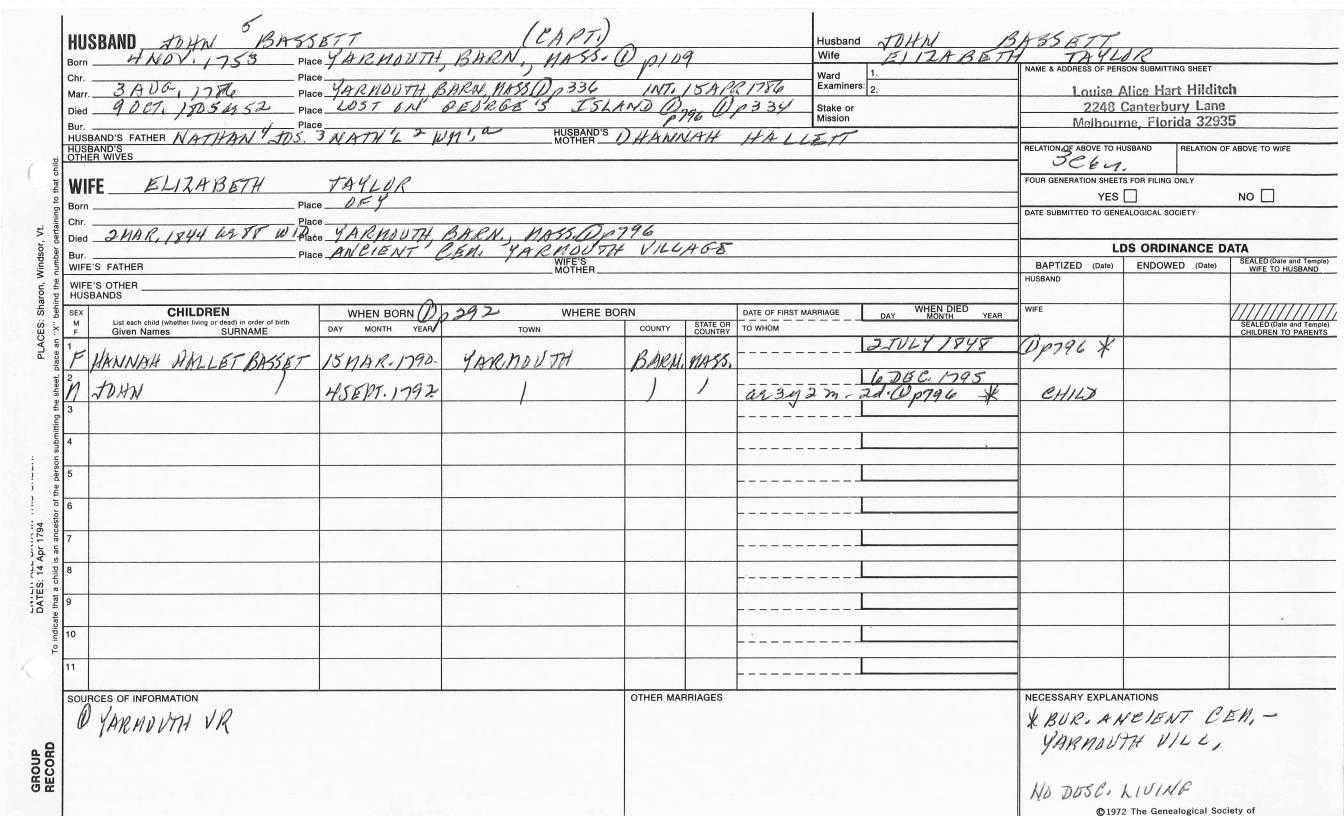 HUSBAND JOHN 5 BASSETT (CAPT.)
Born 4 NOV. 1753 Place YARMOUTH, BARN., MASS. ① p109
Chr. Place
Marr. 3 AUG, 1786 Place YARMOUTH, BARN, MASS ① p336 INT. 15 APR 1786
Died 9 OCT. 1805 ae 52 Place LOST ON GEORGE'S ISLAND ① p796 ① p334
Bur. Place
HUSBAND'S FATHER NATHAN 4 JOS. 3 NATH'L 2 WM'
HUSBAND'S MOTHER HANNAH HALLETT
HUSBAND'S OTHER WIVES
WIFE ELIZABETH TAYLOR
Born Place OF Y
Chr. Place
Died 2 MAR, 1844 ae 88 WID. Place YARMOUTH, BARN., MASS ① p796
Bur. Place ANCIENT CEM. YARMOUTH VILLAGE
WIFE'S FATHER
WIFE'S MOTHER
WIFE'S OTHER HUSBANDS
Husband JOHN BASSETT
Wife ELIZABETH TAYLOR
Ward Examiners:
1.
2.
Stake or Mission
NAME & ADDRESS OF PERSON SUBMITTING SHEET
Louise Alice Hart Hilditch
2248 Canterbury Lane
Melbourne, Florida 32935
RELATION OF ABOVE TO HUSBAND
RELATION OF ABOVE TO WIFE
FOUR GENERATION SHEETS FOR FILING ONLY
YES NO
DATE SUBMITTED TO GENEALOGICAL SOCIETY
LDS ORDINANCE DATA
BAPTIZED (Date) ENDOWED (Date) SEALED (Date and Temple) WIFE TO HUSBAND
HUSBAND
WIFE
SEALED (Date and Temple) CHILDREN TO PARENTS
SEX M F
CHILDREN
List each child (whether living or dead) in order of birth
Given Names SURNAME
WHEN BORN ① p292
DAY MONTH YEAR
WHERE BORN
TOWN COUNTY STATE OR COUNTRY
DATE OF FIRST MARRIAGE
TO WHOM
WHEN DIED
DAY MONTH YEAR
1 F HANNAH HALLET BASSET 15 MAR. 1790 YARMOUTH BARN. MASS. 2 JULY 1848 ① p796 *
2 M JOHN 4 SEPT. 1792 6 DEC. 1795
ae 3 y 2 m - 2d. ① p796 * CHILD
3
4
5
6
7
8
9
10
11
SOURCES OF INFORMATION
① YARMOUTH VR
OTHER MARRIAGES
NECESSARY EXPLANATIONS
* BUR. ANCIENT CEM. -
YARMOUTH VILL,
NO DESC. LIVING
©1972 The Genealogical Society of
GROUP RECORD
DATES: 14 Apr 1794
PLACES: Sharon, Windsor, Vt.
To indicate that a child is an ancestor of the person submitting the sheet, place an "X" behind the number pertaining to that child.